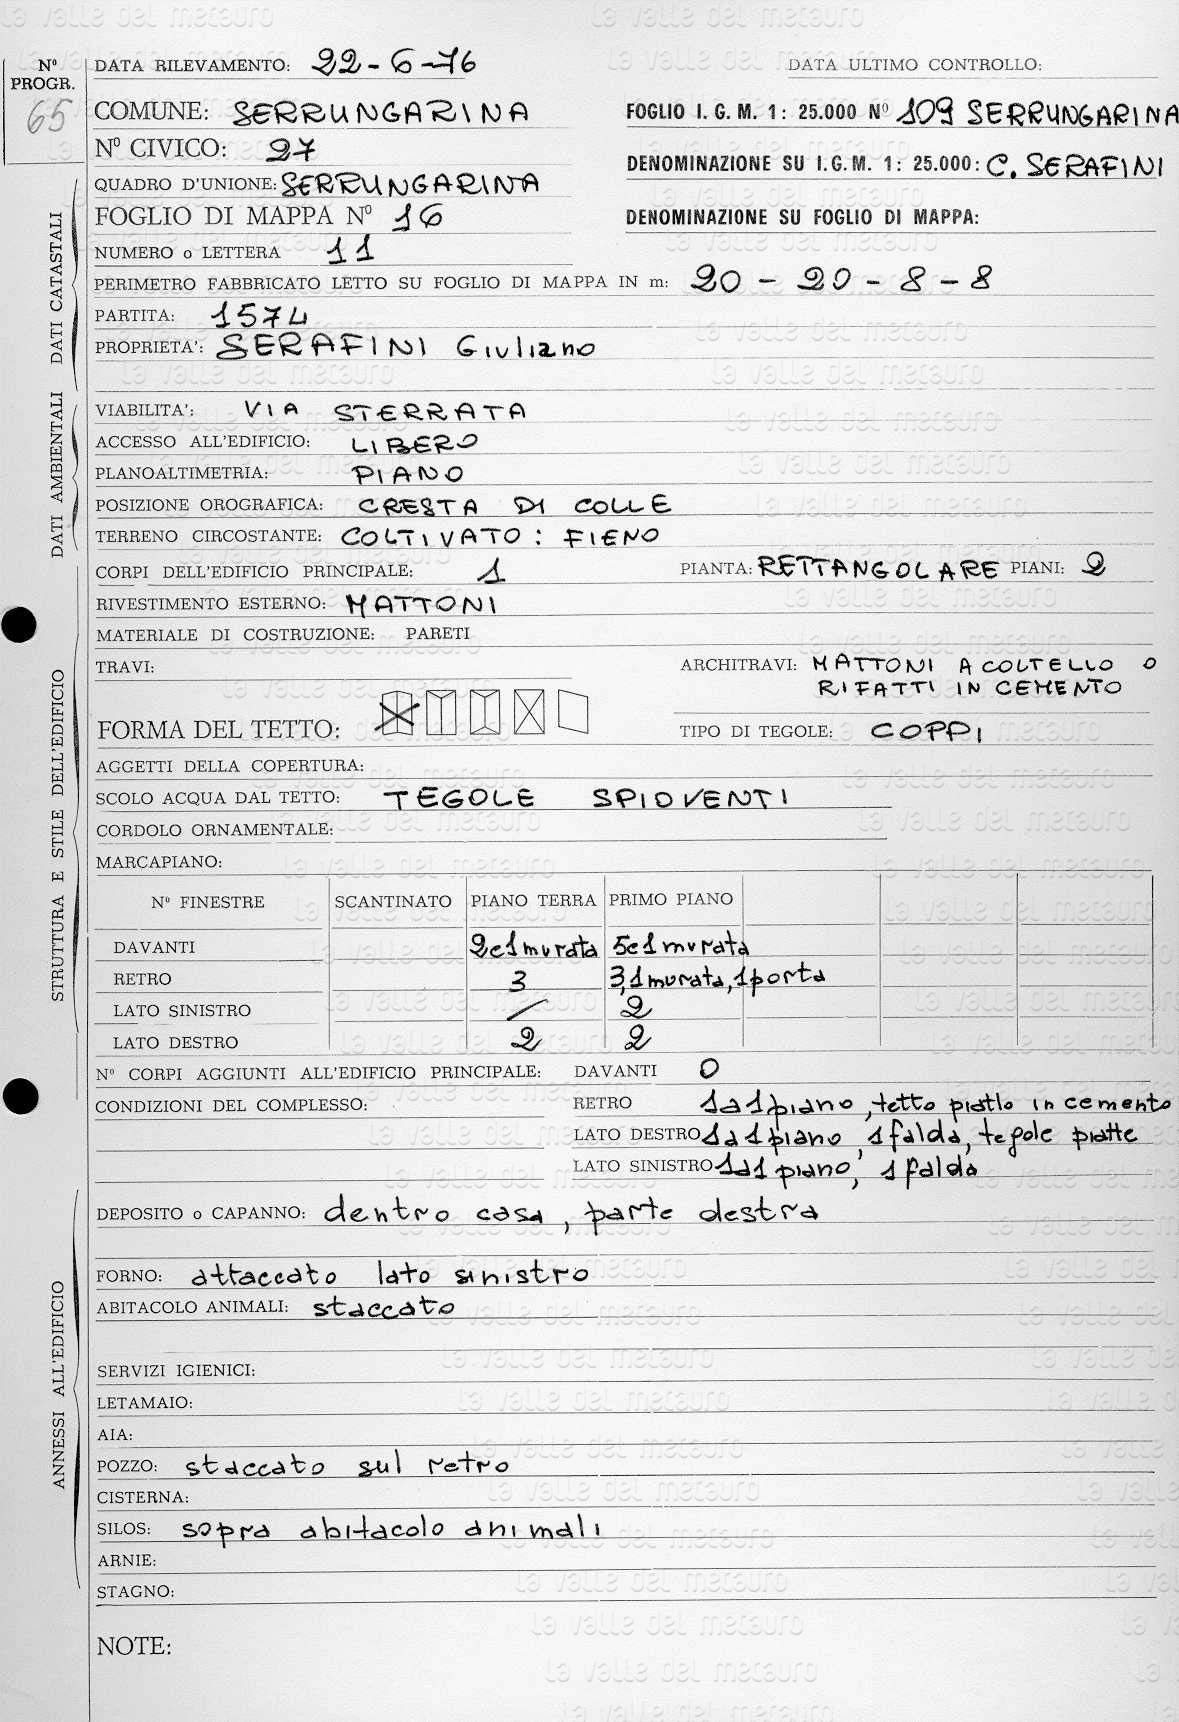 Nº PROGR. 65
DATA RILEVAMENTO: 22-6-76 DATA ULTIMO CONTROLLO:
COMUNE: SERRUNGARINA FOGLIO I. G. M. 1: 25.000 Nº 109 SERRUNGARINA
Nº CIVICO: 27 DENOMINAZIONE SU I.G.M. 1: 25.000: C. SERAFINI
DATI CATASTALI
QUADRO D'UNIONE: SERRUNGARINA
FOGLIO DI MAPPA Nº 16 DENOMINAZIONE SU FOGLIO DI MAPPA:
NUMERO o LETTERA 11
PERIMETRO FABBRICATO LETTO SU FOGLIO DI MAPPA IN m: 20 - 20 - 8 - 8
PARTITA: 1574
PROPRIETA': SERAFINI Giuliano
DATI AMBIENTALI
VIABILITA': VIA STERRATA
ACCESSO ALL'EDIFICIO: LIBERO
PLANOALTIMETRIA: PIANO
POSIZIONE OROGRAFICA: CRESTA DI COLLE
TERRENO CIRCOSTANTE: COLTIVATO: FIENO
STRUTTURA E STILE DELL'EDIFICIO
CORPI DELL'EDIFICIO PRINCIPALE: 1 PIANTA: RETTANGOLARE PIANI: 2
RIVESTIMENTO ESTERNO: MATTONI
MATERIALE DI COSTRUZIONE: PARETI
TRAVI: ARCHITRAVI: MATTONI A COLTELLO O
RIFATTI IN CEMENTO
FORMA DEL TETTO: TIPO DI TEGOLE: COPPI
AGGETTI DELLA COPERTURA:
SCOLO ACQUA DAL TETTO: TEGOLE SPIOVENTI
CORDOLO ORNAMENTALE:
MARCAPIANO:
Nº FINESTRE SCANTINATO PIANO TERRA PRIMO PIANO
DAVANTI 2e1murata 5e1murata
RETRO 3 3,1murata,1porta
LATO SINISTRO / 2
LATO DESTRO 2 2
Nº CORPI AGGIUNTI ALL'EDIFICIO PRINCIPALE: DAVANTI 0
CONDIZIONI DEL COMPLESSO: RETRO 1a1piano, tetto piatto in cemento
LATO DESTRO 1a1piano, 1falda, tegole piatte
LATO SINISTRO 1a1piano, 1falda
ANNESSI ALL'EDIFICIO
DEPOSITO o CAPANNO: dentro casa, parte destra
FORNO: attaccato lato sinistro
ABITACOLO ANIMALI: staccato
SERVIZI IGIENICI:
LETAMAIO:
AIA:
POZZO: staccato sul retro
CISTERNA:
SILOS: sopra abitacolo animali
ARNIE:
STAGNO:
NOTE:
la valle del metauro